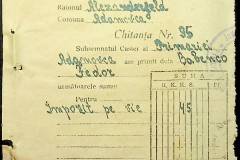 Raionul Alexanderfeld
Comuna Adamovca
Chitanța Nr. 95
Subsemnatul Casier al Primăriei
Adamovca am primit dela Babenco
Fedor
SUMA
următoarele sume:
O.K.R. R.K.K.S.
Pentru
Impozit pe vie 45